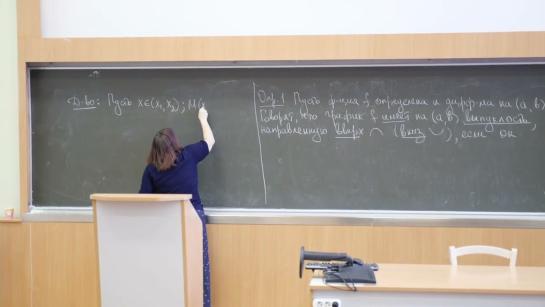 Д-во: Пусть x∈(x₁, x₂); M(x
Опр.1 Пусть ф-ция f определена и дифф-ма на (a, b).
Говорят, что график f имеет на (a, b) выпуклость,
направленную вверх ⌒ (вниз ⌣), если он